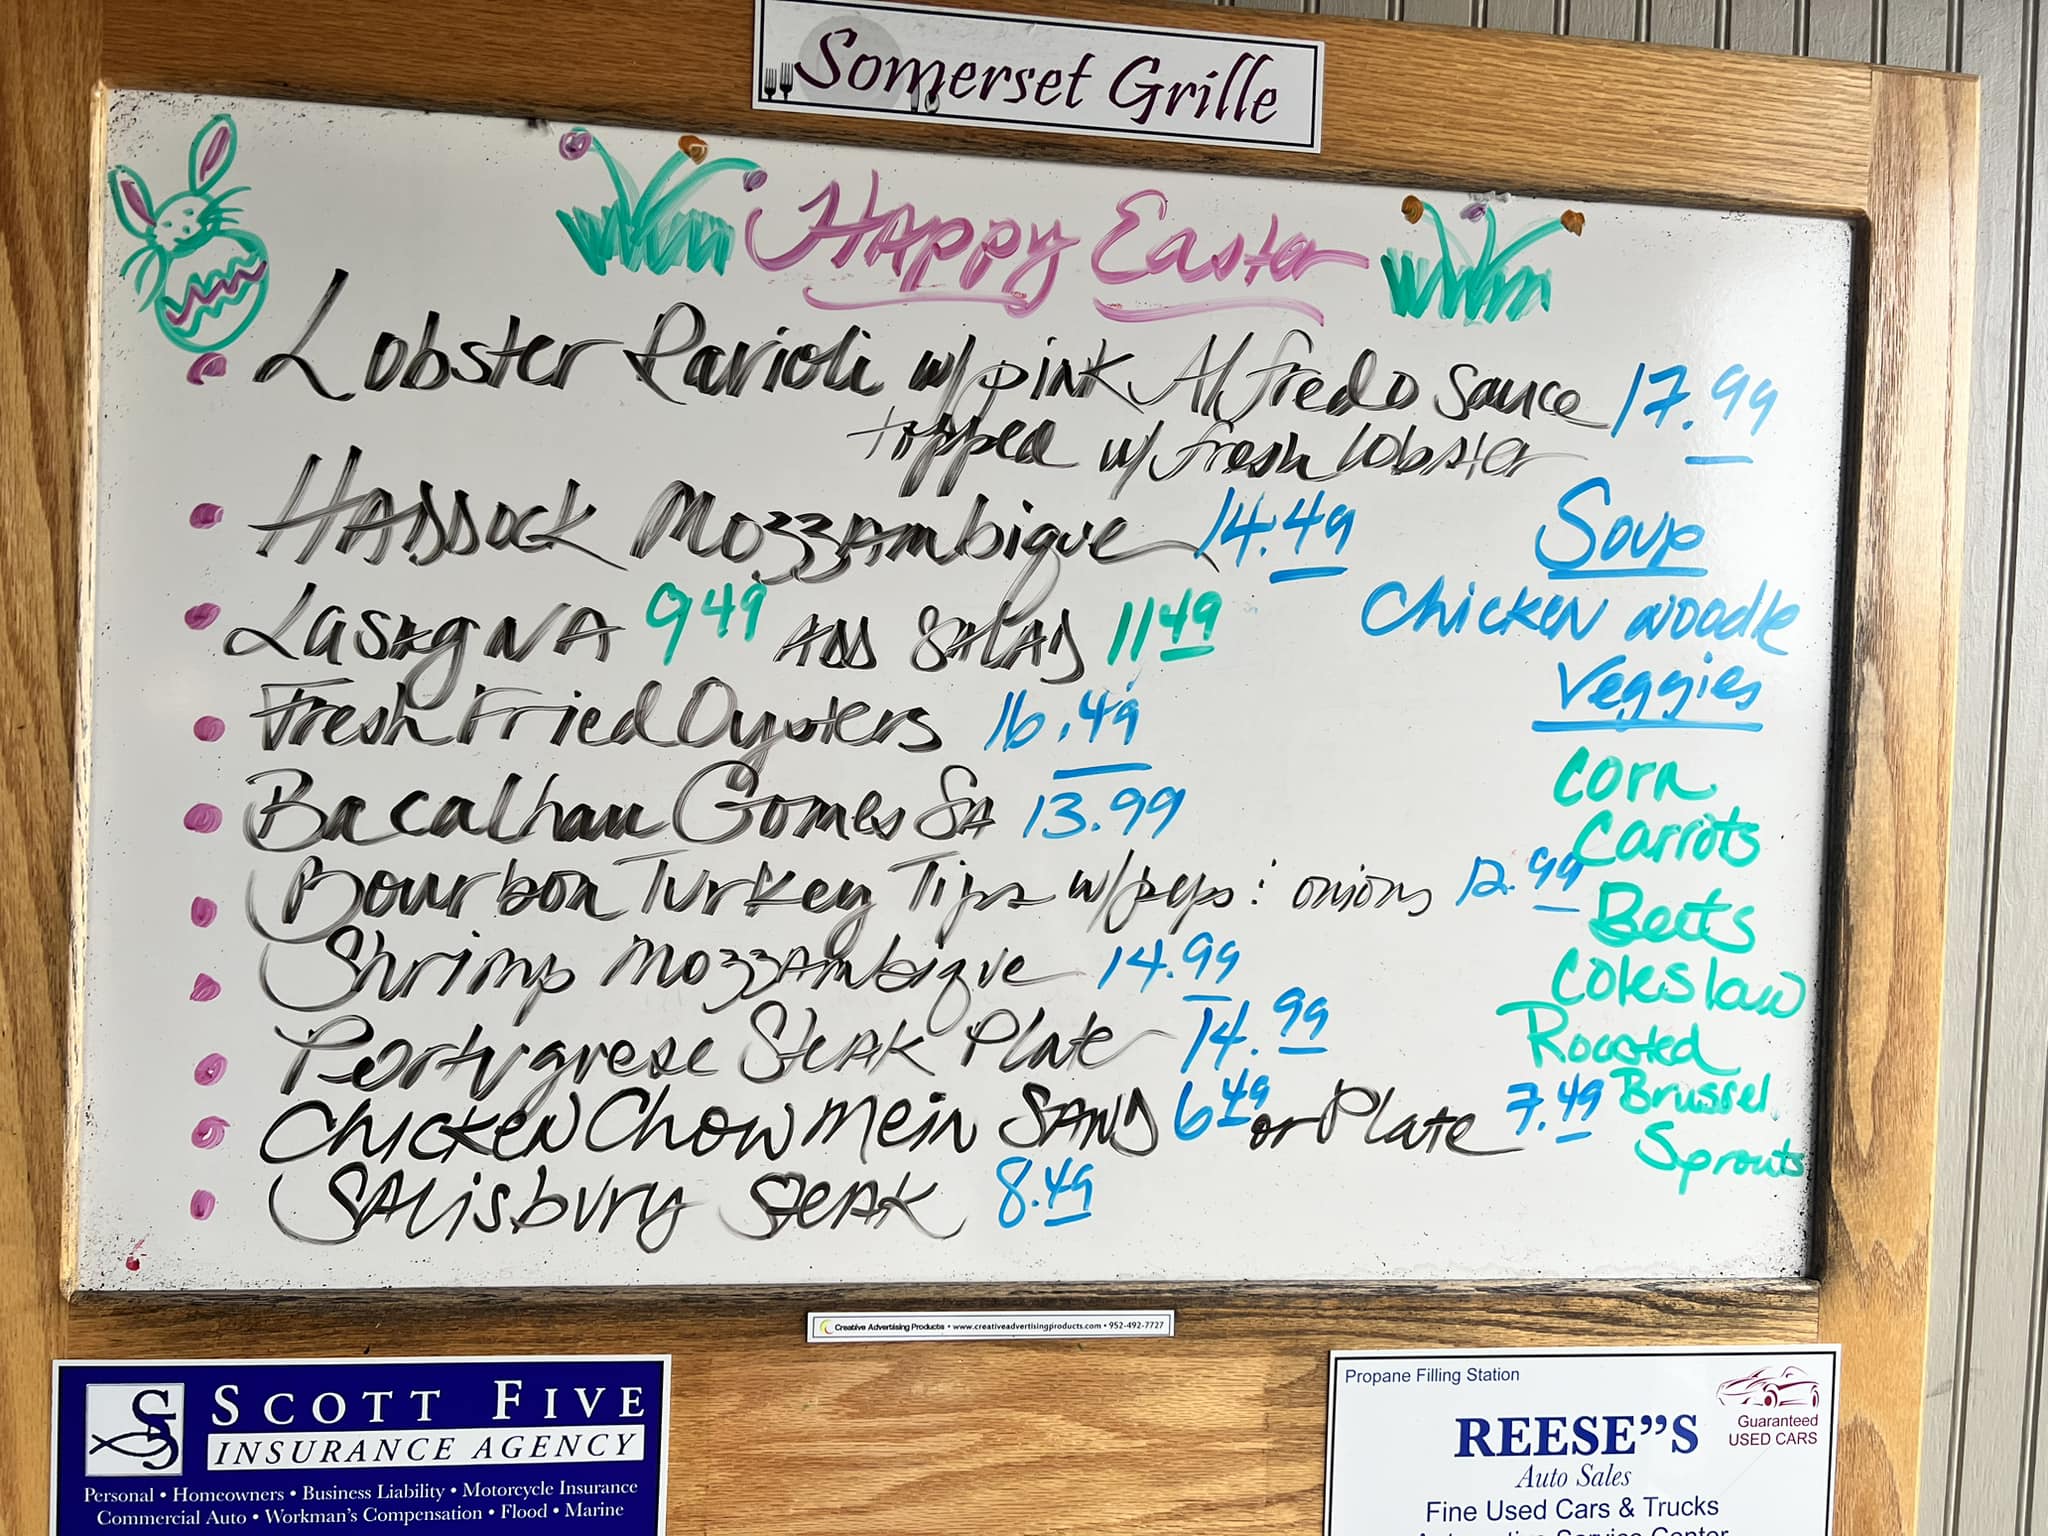 Somerset Grille
Happy Easter
Lobster Ravioli w/ pink Alfredo sauce 17.99
topped w/ fresh lobster
Haddock Mozzambique 14.49
Lasagna 949 Add Salad 1149
Fresh Fried Oysters 16.49
Bacalhau Gomes Sa 13.99
Bourbon Turkey Tips w/ peps : onions 12.99
Shrimp Mozzambique 14.99
Portugrese Steak Plate 14.99
Chicken Chow mein Sand 649 or Plate 7.49
Salisbury Steak 8.49
Soup
Chicken Noodle
Veggies
Corn
Carrots
Beets
Coleslaw
Roasted
Brussel
Sprouts
Creative Advertising Products • www.creativeadvertisingproducts.com • 952-492-7727
SCOTT FIVE
INSURANCE AGENCY
Personal • Homeowners • Business Liability • Motorcycle Insurance
Commercial Auto • Workman's Compensation • Flood • Marine
Propane Filling Station
Guaranteed
USED CARS
REESE”S
Auto Sales
Fine Used Cars & Trucks
Automotive Service Center